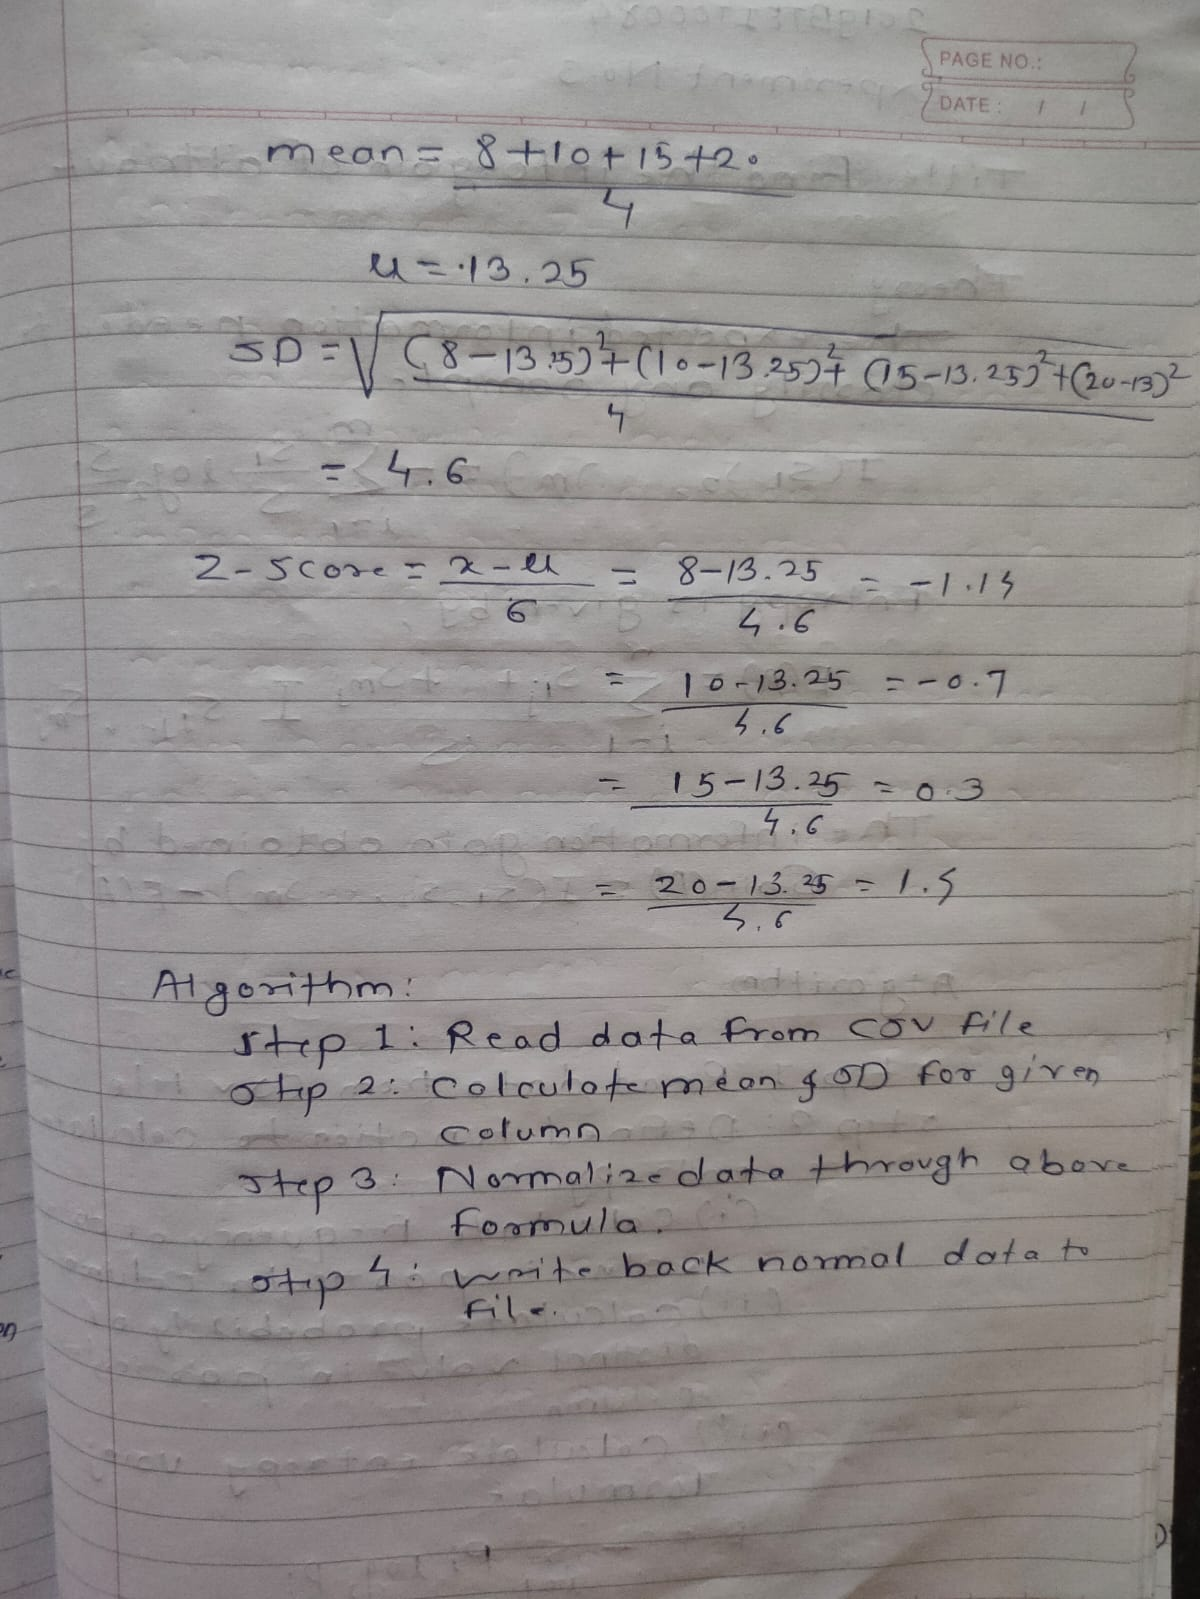 PAGE NO.:
DATE: / /
mean = 8+10+15+20
4
μ = 13.25
SD = √ (8-13.25)²+(10-13.25)²+(15-13.25)²+(20-13)²
4
= 4.6
Z-score = x-μ = 8-13.25 = -1.14
σ 4.6
= 10-13.25 = -0.7
4.6
= 15-13.25 = 0.3
4.6
= 20-13.25 = 1.4
4.6
Algorithm:
Step 1: Read data from CSV file
Step 2: Calculate mean & SD for given
column
Step 3: Normalize data through above
formula.
Step 4: Write back normal data to
file.